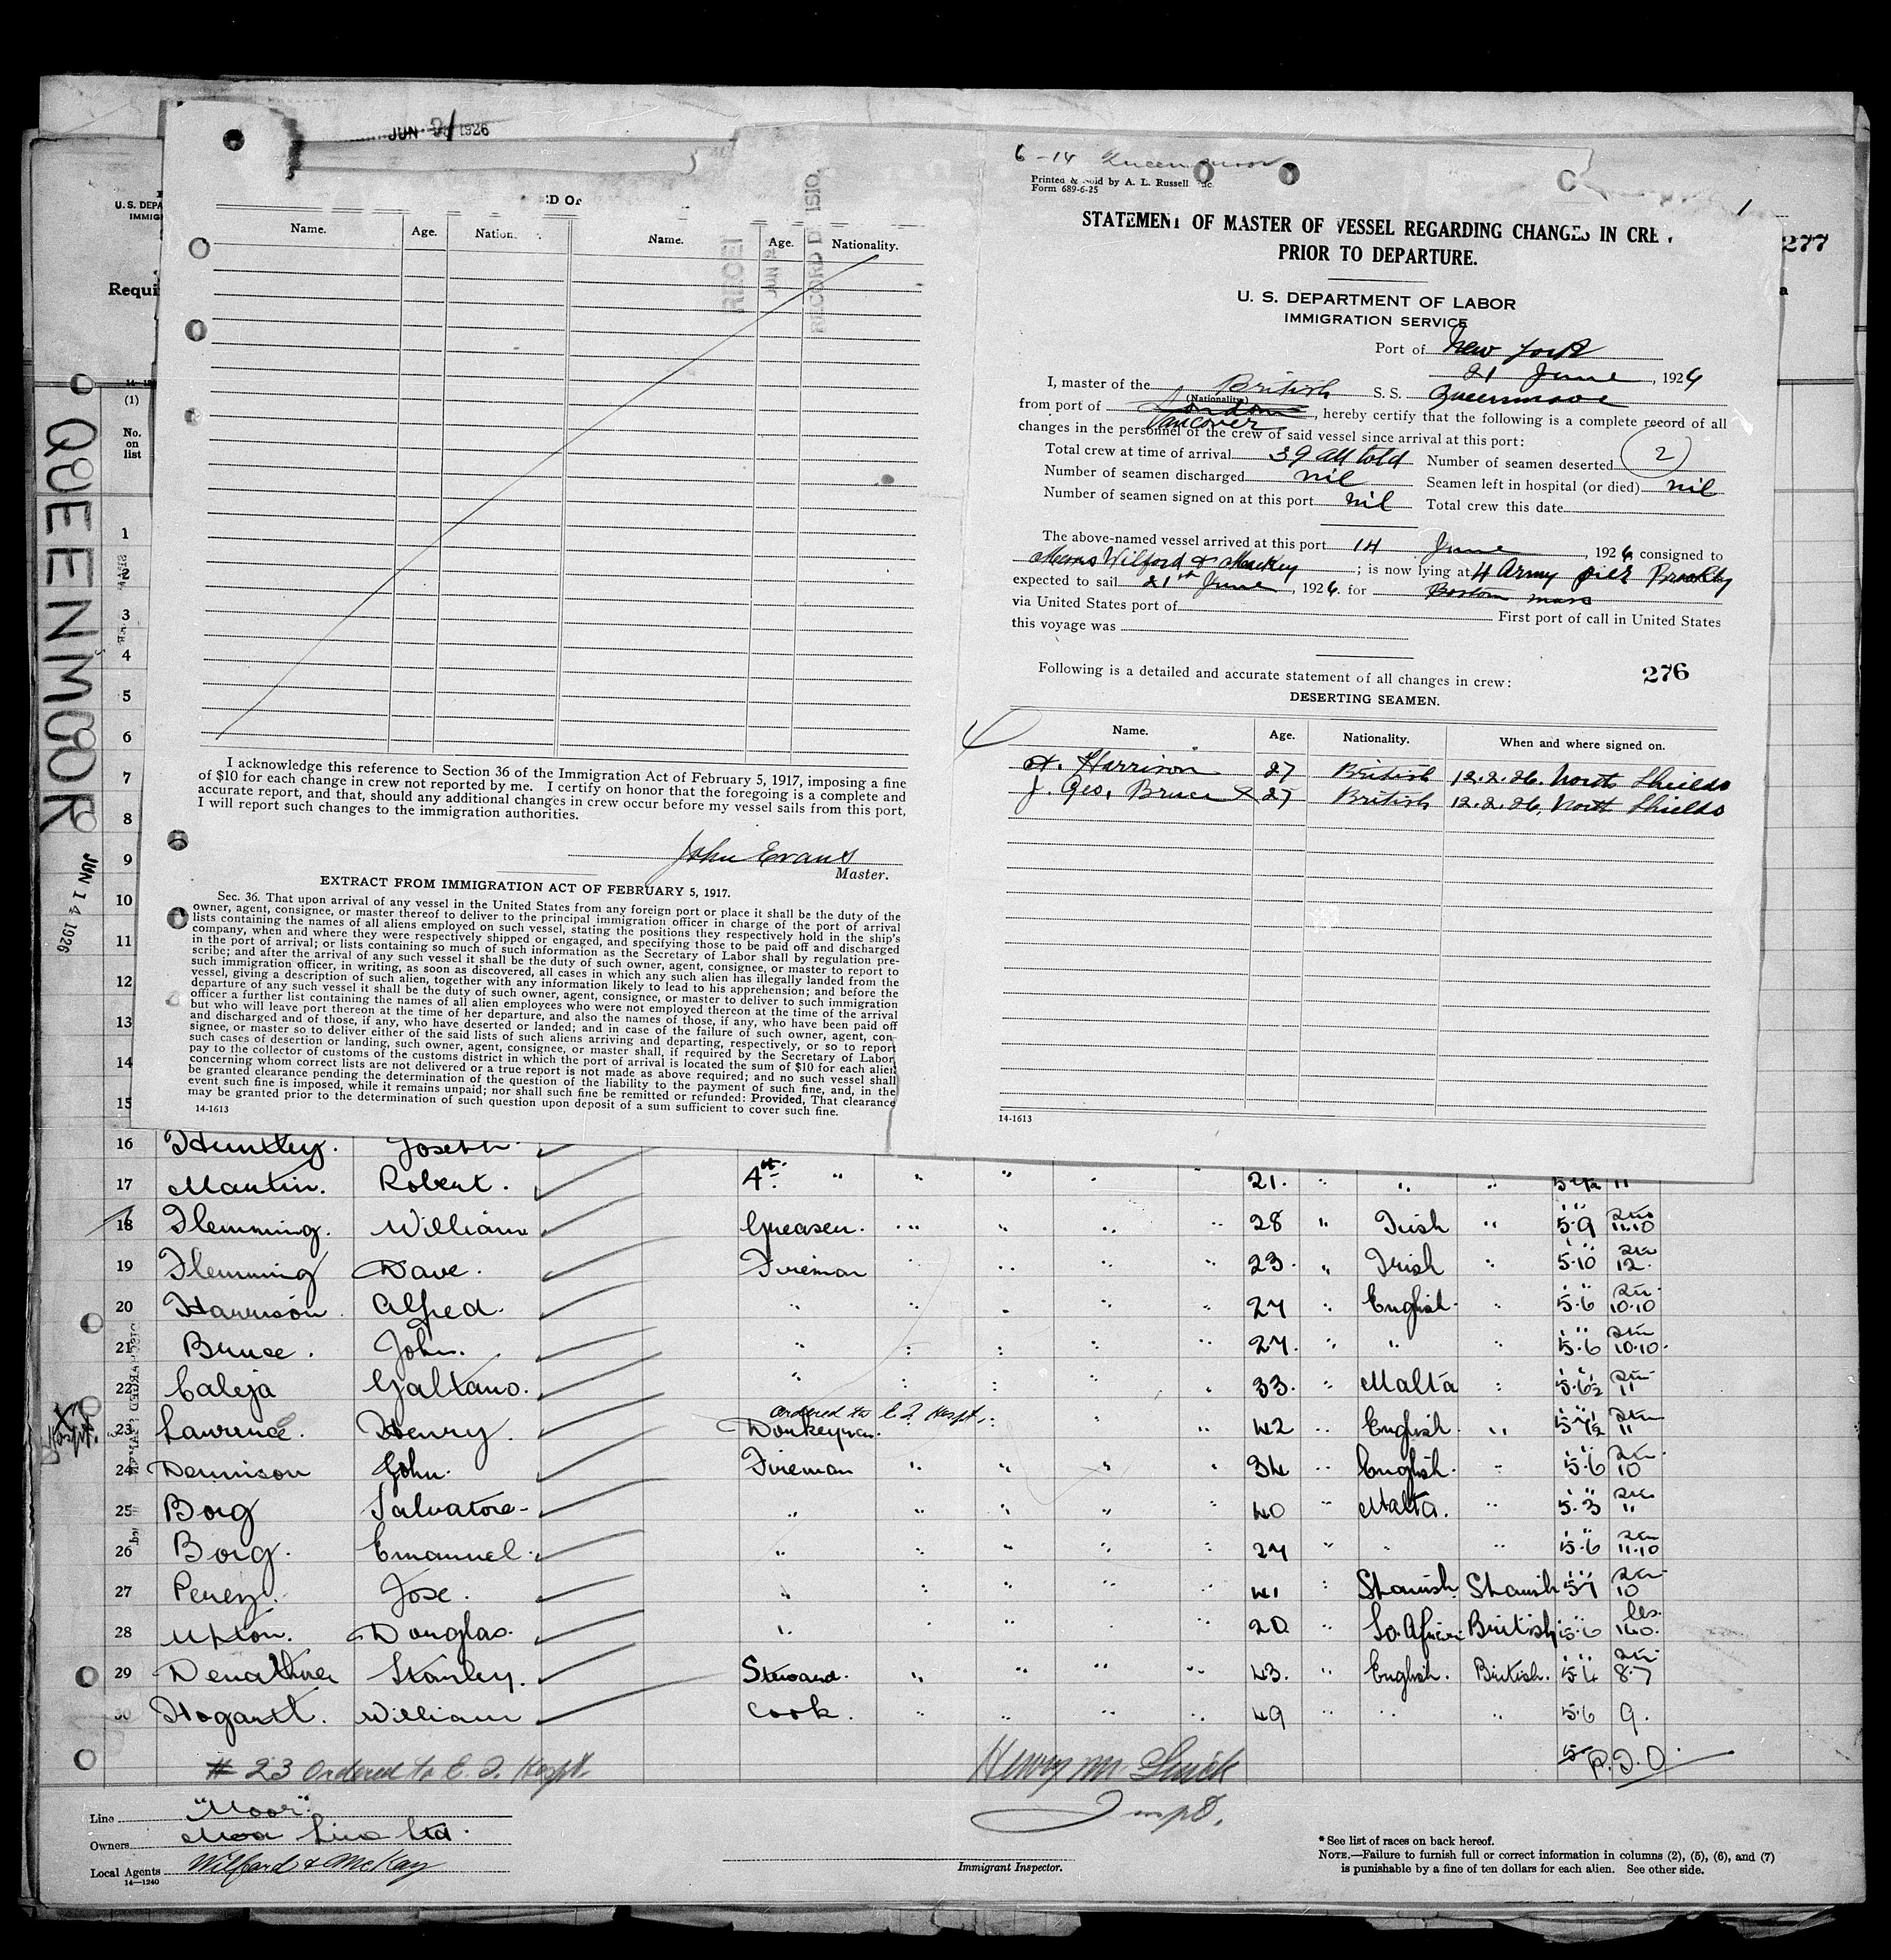 JUN 21 1926
ED OF
Name. Age. Nation. Name. Age. Nationality.
I acknowledge this reference to Section 36 of the Immigration Act of February 5, 1917, imposing a fine
of $10 for each change in crew not reported by me. I certify on honor that the foregoing is a complete and
accurate report, and that, should any additional changes in crew occur before my vessel sails from this port,
I will report such changes to the immigration authorities.
John Evans
Master.
EXTRACT FROM IMMIGRATION ACT OF FEBRUARY 5, 1917.
Sec. 36. That upon arrival of any vessel in the United States from any foreign port or place it shall be the duty of the
owner, agent, consignee, or master thereof to deliver to the principal immigration officer in charge of the port of arrival
lists containing the names of all aliens employed on such vessel, stating the positions they respectively hold in the ship's
company, when and where they were respectively shipped or engaged, and specifying those to be paid off and discharged
in the port of arrival; or lists containing so much of such information as the Secretary of Labor shall by regulation pre-
scribe; and after the arrival of any such vessel it shall be the duty of such owner, agent, consignee, or master to report to
such immigration officer, in writing, as soon as discovered, all cases in which any such alien has illegally landed from the
vessel, giving a description of such alien, together with any information likely to lead to his apprehension; and before the
departure of any such vessel it shall be the duty of such owner, agent, consignee, or master to deliver to such immigration
officer a further list containing the names of all alien employees who were not employed thereon at the time of the arrival
but who will leave port thereon at the time of her departure, and also the names of those, if any, who have been paid off
and discharged and of those, if any, who have deserted or landed; and in case of the failure of such owner, agent, con-
signee, or master so to deliver either of the said lists of such aliens arriving and departing, respectively, or so to report
such cases of desertion or landing, such owner, agent, consignee, or master shall, if required by the Secretary of Labor,
pay to the collector of customs of the customs district in which the port of arrival is located the sum of $10 for each alien
concerning whom correct lists are not delivered or a true report is not made as above required; and no such vessel shall
be granted clearance pending the determination of the question of the liability to the payment of such fine, and, in the
event such fine is imposed, while it remains unpaid; nor shall such fine be remitted or refunded: Provided, That clearance
may be granted prior to the determination of such question upon deposit of a sum sufficient to cover such fine.
14-1613
6-14 Queenmoor
Printed & Sold by A. L. Russell, Inc.
Form 689-6-25
STATEMENT OF MASTER OF VESSEL REGARDING CHANGES IN CREW
PRIOR TO DEPARTURE.
U. S. DEPARTMENT OF LABOR
IMMIGRATION SERVICE
Port of New York
21 June, 1926
I, master of the British S. S. Queenmoor
(Nationality)
from port of London Vancover, hereby certify that the following is a complete record of all
changes in the personnel of the crew of said vessel since arrival at this port:
Total crew at time of arrival 39 all told Number of seamen deserted 2
Number of seamen discharged nil Seamen left in hospital (or died) nil
Number of seamen signed on at this port nil Total crew this date
The above-named vessel arrived at this port 14 June, 1926 consigned to
Messrs Wilford & Mackey; is now lying at 4 Army pier Brookly
expected to sail 21st June, 1926. for Boston mass
via United States port of First port of call in United States
this voyage was
Following is a detailed and accurate statement of all changes in crew: 276
DESERTING SEAMEN.
Name. Age. Nationality. When and where signed on.
A. Harrison 27 British 12.2.26, North Shields
J. Geo. Bruce x 27 British 12.2.26, North Shields
14-1613
277
U. S. DEPA
IMMIG
Requi
(1)
No.
on
list
QUEENMOOR
JUN 14 1926
1
2
3
4
5
6
7
8
9
10
11
12
13
14
15
16 Huntley. Joseph
17 Martin. Robert. 4th " " " " " 21. " " " 11
18 Flemming. William Greaser. " " " " 28 " Irish " 5·9 11.10
19 Flemming Dave. Fireman " " " " 23. " Irish " 5·10 12.
20 Harrison Alfred. " " " " " 27 " English. " 5·6 10·10
21 Bruce. John. " " " " " 27. " " " 5·6 10·10.
22 Caleja Galtano. " " " " " 33. " Malta " 5·6½ 11
ordered to E. I. Hospt.
23 Lawrence Henry. Donkeyman. " " " 42 " English. " 11
24 Dennison John. Fireman " " " " 34 " English. " 5·6 10
25 Borg Salvatore " " " " " 40 " Malta. " 5·3 11
26 Borg. Emanuel. " " " " " 27 " " " 5·6 11·10
27 Perez. Jose. " " " " " 41 " Spanish Spanish 5·7 10
28 Upton. Douglas. " " " " " 20 " So. African British 5·6 140.
29 Stanley. Steward. " " " " 43. " English. British. 5·4 8·7
30 Hogartt. William Cook. " " " " 49 " " " 5·6 9.
Hospt.
# 23 Ordered to E. I. Hospt.
Henry M.
Inspt.
Line "Moor".
Owners Moor Line Ltd.
Local Agents Wilford & McKay
14—1240
Immigrant Inspector.
* See list of races on back hereof.
NOTE.—Failure to furnish full or correct information in columns (2), (5), (6), and (7)
is punishable by a fine of ten dollars for each alien. See other side.